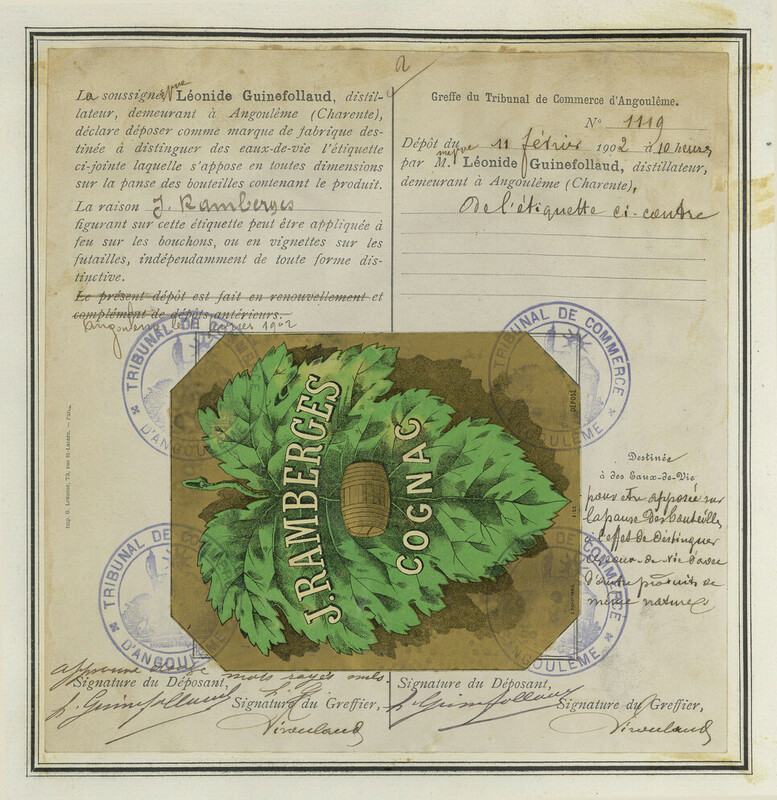 a
La soussignée Vve Léonide Guinefollaud, distil-
lateur, demeurant à Angoulême (Charente),
déclare déposer comme marque de fabrique des-
tinée à distinguer des eaux-de-vie l'étiquette
ci-jointe laquelle s'appose en toutes dimensions
sur la panse des bouteilles contenant le produit.
La raison J. Ramberges
figurant sur cette étiquette peut être appliquée à
feu sur les bouchons, ou en vignettes sur les
futailles, indépendamment de toute forme dis-
tinctive.
Le présent dépôt est fait en renouvellement et
complément de dépôts antérieurs.
Angoulême le février 1902
Greffe du Tribunal de Commerce d'Angoulême.
N° 1119
Dépôt du 11 février 1902 à 10 heures
par M. Léonide Guinefollaud, distillateur,
demeurant à Angoulême (Charente),
De l'étiquette ci-contre
TRIBUNAL DE
D'ANGOULÊME
TRIBUNAL DE COMMERCE
D'ANGOULÊME
J. RAMBERGES
COGNAC
DÉPOSÉ
Destinée
à des Eaux-de-Vie
pour être apposée sur
la panse des bouteilles
à l'effet de distinguer
d'autre produits de
même nature
TRIBUNAL DE
D'ANGOULÊME
DE COMMERCE
D'ANGOULÊME
mots rayés nuls
Signature du Déposant,
L. Guinefollaud
Signature du Greffier,
Signature du Déposant,
L. Guinefollaud
Signature du Greffier,